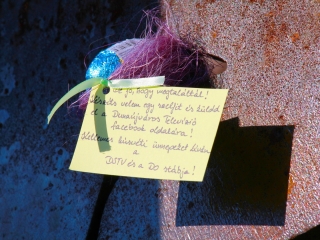 de jó, hogy megtaláltál!
Készíts velem egy szelfit és küldd
el a Dunaújváros Televízió
facebook oldalára!
Kellemes húsvéti ünnepeket kíván
a
DSTV és a DO stábja!